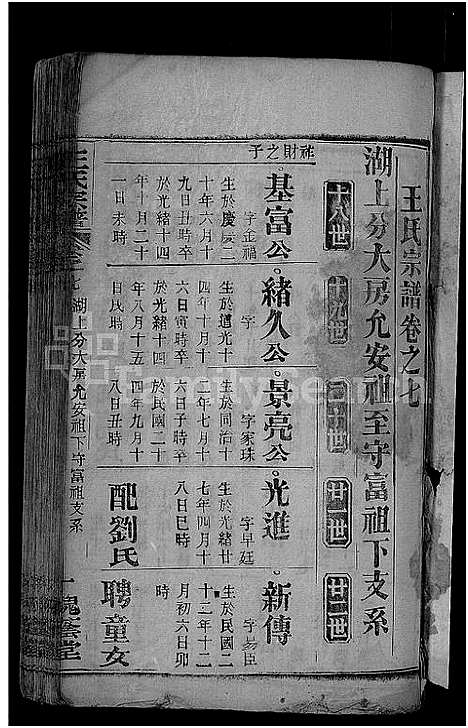 王氏宗譜卷之七
湖上分大房允安祖至守富祖下支系
十八世
十九世
二十世
廿一世
廿二世
祥財之子
基富公
字金福
生於慶慶二
十年六月十
九日丑時卒
於光緒十四
年十月二十
一日未時
緒久公
字
生於道光十
四年十月十
六日寅時卒
於光緒十四
年八月十五
日民時
景亮公
字家珠
生於同治十
一年七月十
六日子時卒
於民國二十
四年九月十
八日丑時
光進
字早廷
生於光緒廿
七年四月十
八日巳時
配劉氏
新傳
字易臣
生於民國二
十二年十二
月初六日卯
時
聘童女
王氏宗譜
卷之七
湖上分大房允安祖下守富祖支系
槐蔭堂
FamilySearch